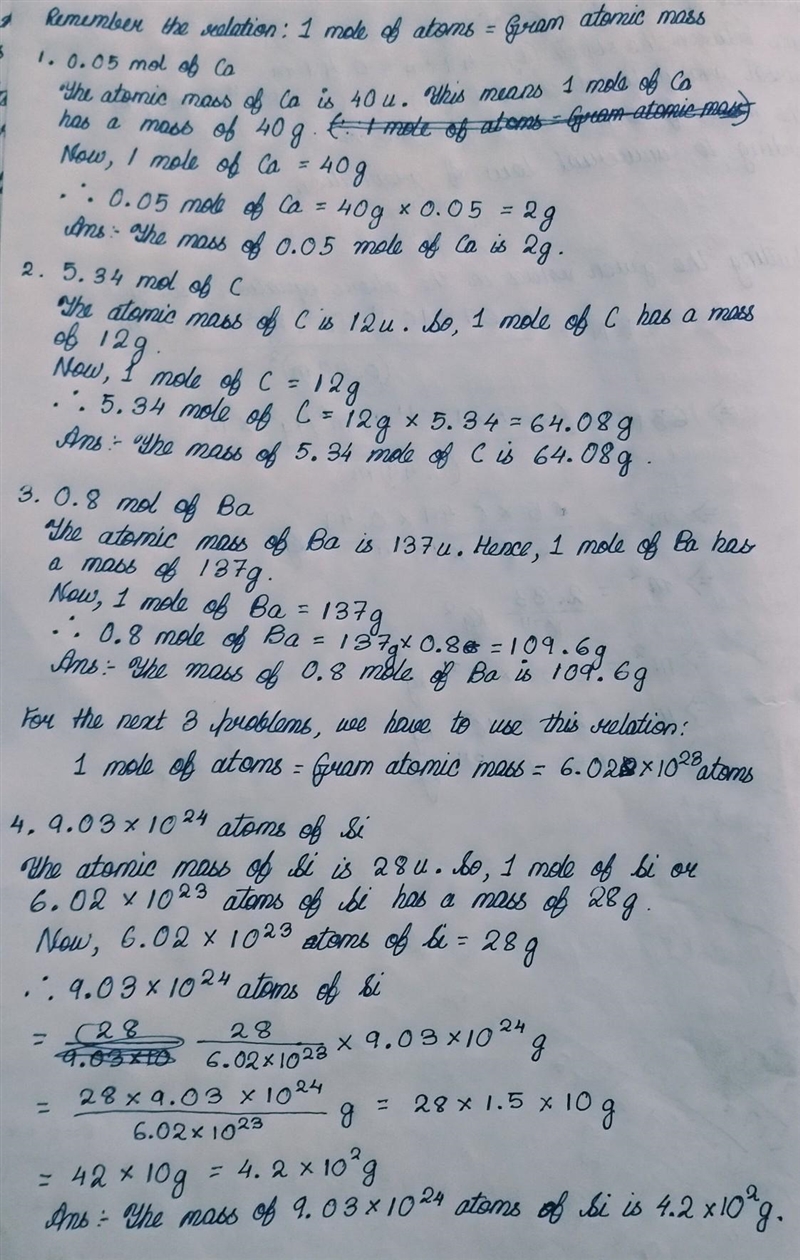 Remember the relation: 1 mole of atoms = Gram atomic mass
1. 0.05 mol of Ca
The atomic mass of Ca is 40u. This means 1 mole of Ca
has a mass of 40g. (∵ 1 mole of atoms = Gram atomic mass)
Now, 1 mole of Ca = 40g
∴ 0.05 mole of Ca = 40g × 0.05 = 2g
Ans:- The mass of 0.05 mole of Ca is 2g.
2. 5.34 mol of C
The atomic mass of C is 12u. So, 1 mole of C has a mass
of 12g.
Now, 1 mole of C = 12g
∴ 5.34 mole of C = 12g × 5.34 = 64.08g
Ans:- The mass of 5.34 mole of C is 64.08g.
3. 0.8 mol of Ba
The atomic mass of Ba is 137u. Hence, 1 mole of Ba has
a mass of 137g.
Now, 1 mole of Ba = 137g
∴ 0.8 mole of Ba = 137g × 0.8 = 109.6g
Ans:- The mass of 0.8 mole of Ba is 109.6g
For the next 3 problems, we have to use this relation:
1 mole of atoms = Gram atomic mass = 6.02 × 10²³ atoms
4. 9.03 × 10²⁴ atoms of Si
The atomic mass of Si is 28u. So, 1 mole of Si or
6.02 × 10²³ atoms of Si has a mass of 28g.
Now, 6.02 × 10²³ atoms of Si = 28g
∴ 9.03 × 10²⁴ atoms of Si
= 28 / 6.02×10²³ × 9.03 × 10²⁴ g
= 28 × 9.03 × 10²⁴ / 6.02×10²³ g = 28 × 1.5 × 10 g
= 42 × 10g = 4.2 × 10²g
Ans:- The mass of 9.03 × 10²⁴ atoms of Si is 4.2 × 10²g.